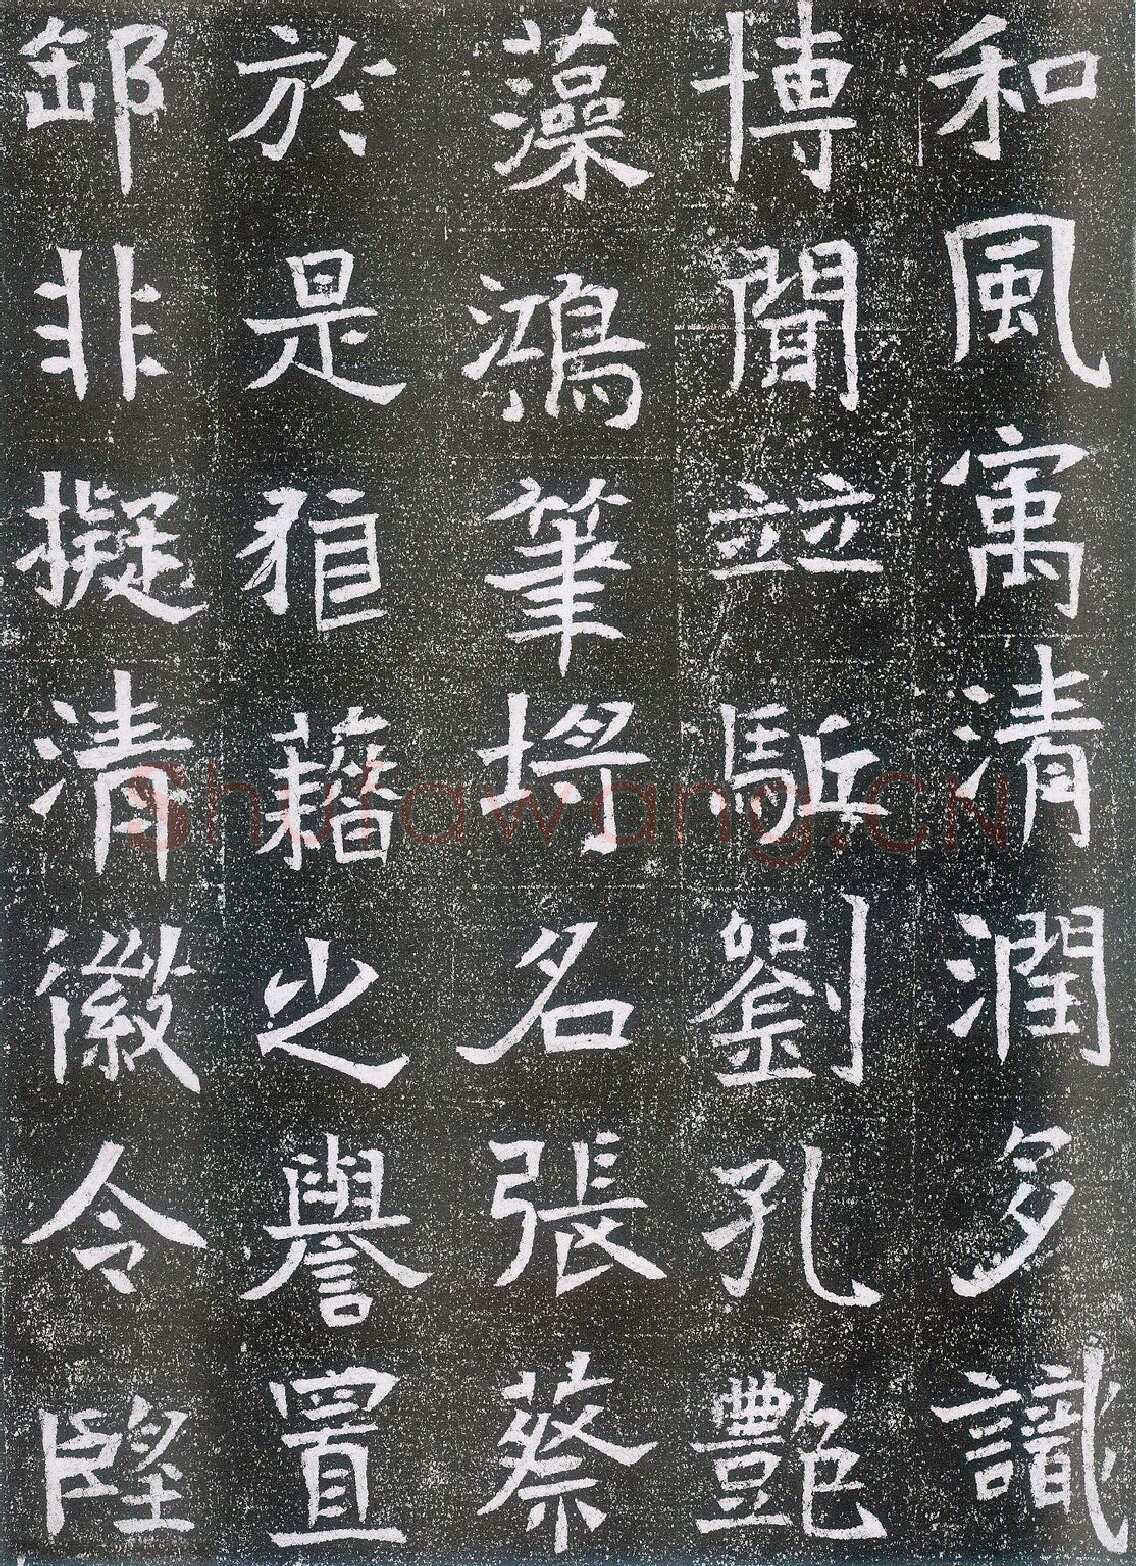 和風寓清潤多識
博聞竝駈劉孔艷
藻鴻筆埒名張蔡
於是藉之譽置
郵非擬清徽令
Shufawang.CN